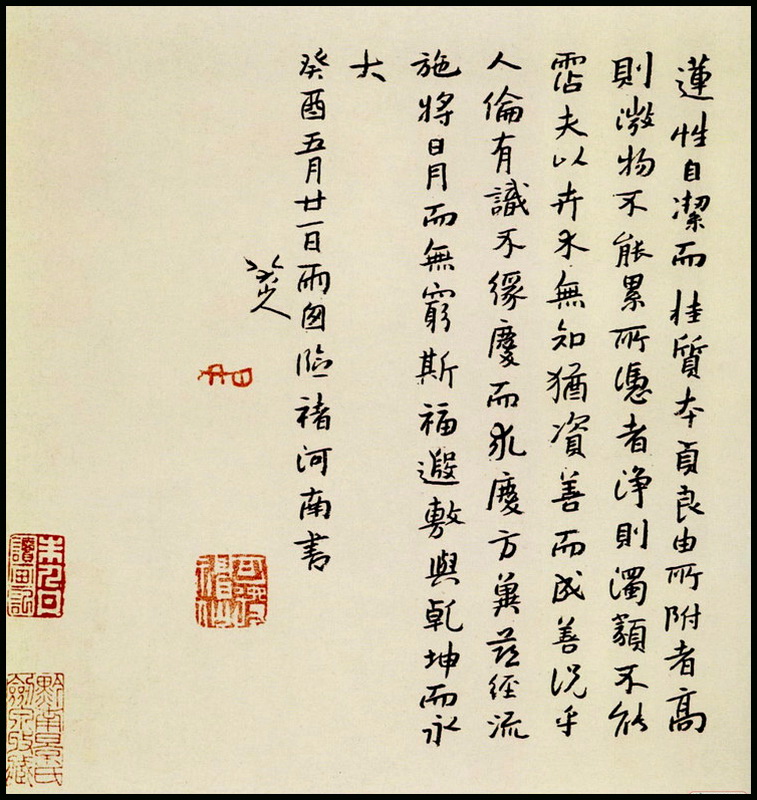 蓮性自潔而桂質本貞良由所附者高
則微物不能累所憑者淨則濁類不能
霑夫以卉木無知猶資善而成善況乎
人倫有識不緣慶而求慶方冀茲經流
施將日月而無窮斯福遐敷與乾坤而永
大
癸酉五月廿一日雨囪臨褚河南書
八大山人
可得神仙